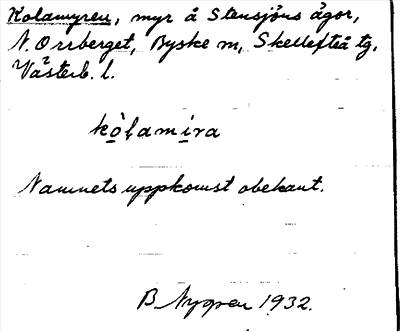 Kolamyren, myr å Stensjöns ägor,
N. Orrberget, Byske sn, Skellefteå tg,
Västerb. l.
kò̱lami̱ra
Namnets uppkomst obekant.
B Nygren 1932.